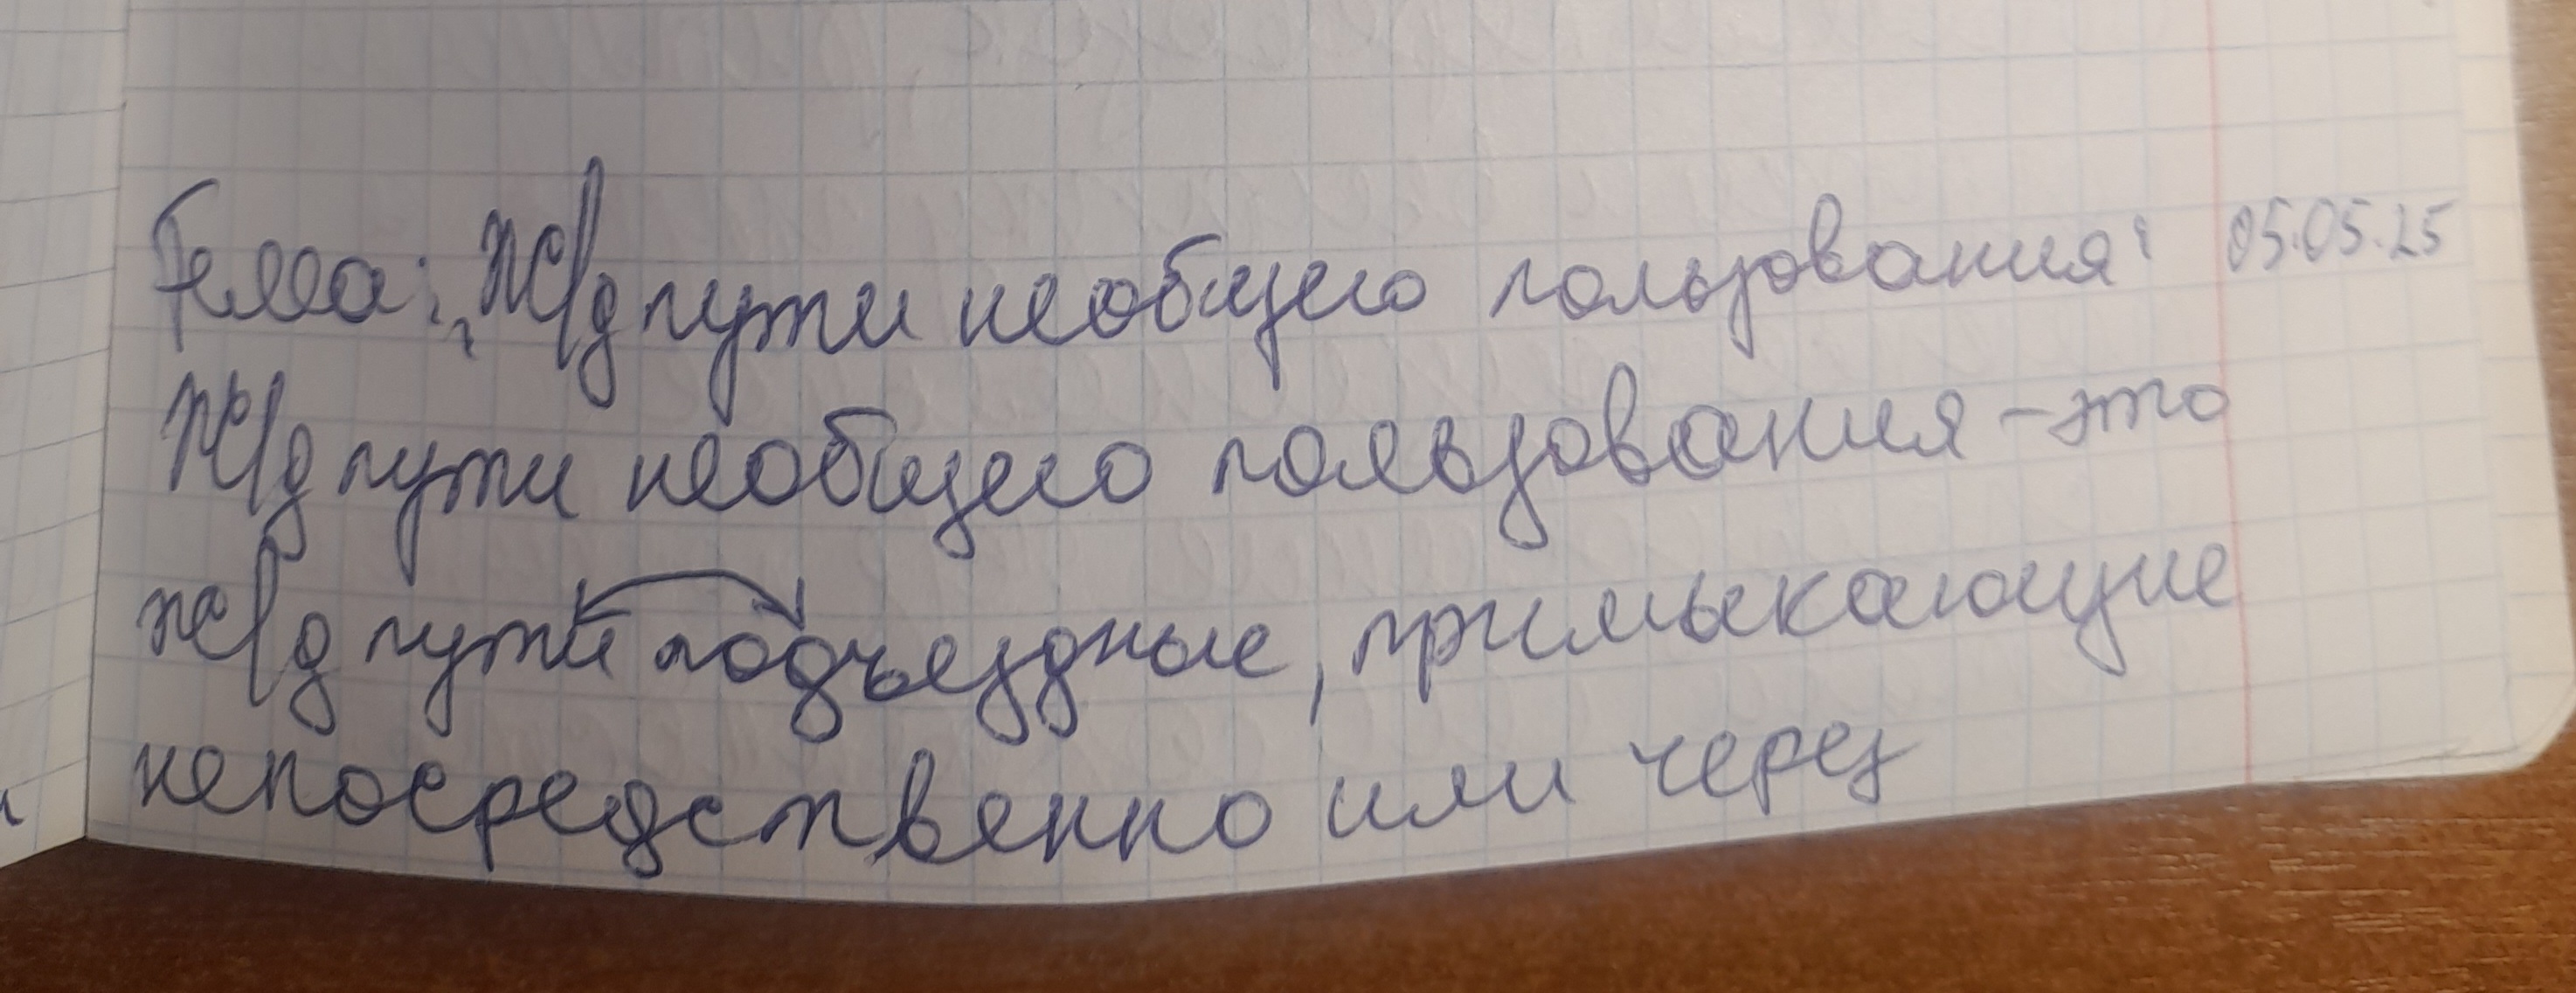 Тема: „Ж/д пути необщего пользования" 05.05.25
Ж/д пути необщего пользования - это
ж/д пути подъездные, примыкающие
непосредственно или через